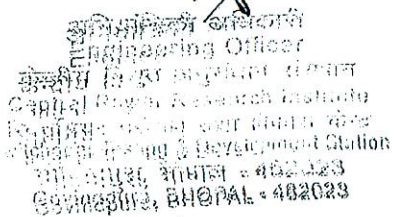 अभियांत्रिकी अधिकारी
Engineering Officer
केन्द्रीय विद्युत अनुसंधान संस्थान
Central Power Research Institute
Testing & Development Station
भोपाल - 462023
Govindpura, BHOPAL - 462023